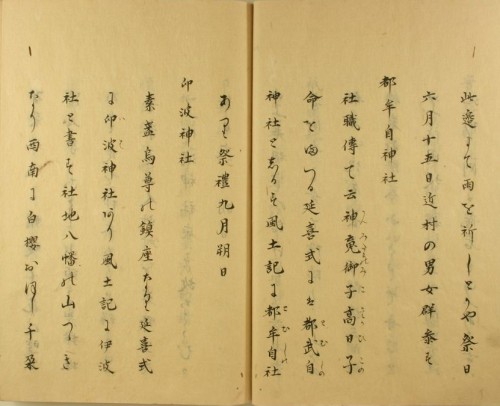 此邊にて雨を祈しとかや祭日
六月十五日近村の男女群参す
都牟自神社
社職傳て云神魂御子髙日子
命を
延喜式には都武自
神社とあるも風土記に都牟自社
あり祭禮九月朔日
印波神社
素盞烏尊の鎮座なりと延喜式
に印波神社あり風土記に伊波
社と書す社地八幡の山つゝき
なり西南に白櫻おほし千